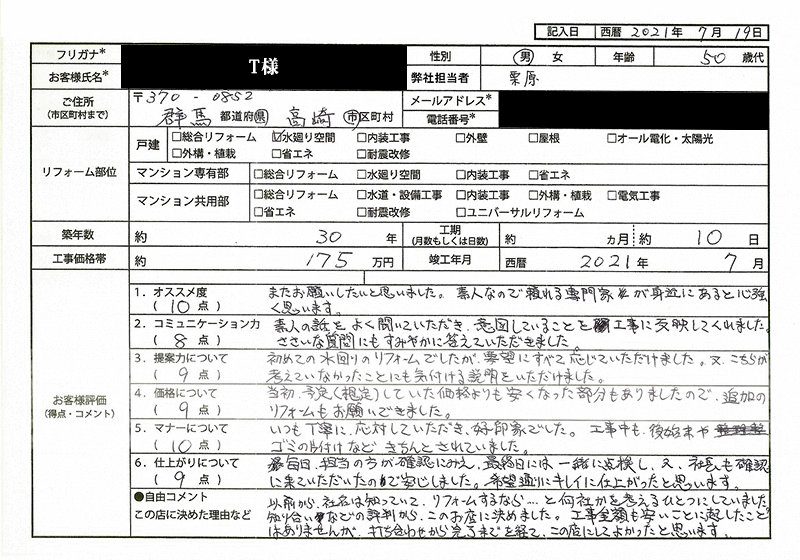 記入日 西暦 2021年 7月 19日
フリガナ* T様 性別 男 女 年齢 50 歳代
お客様氏名* 弊社担当者 栗原
ご住所 (市区町村まで) 〒370-0852 メールアドレス*
群馬 都道府県 高崎 市区町村 電話番号*
リフォーム部位
戸建 □総合リフォーム ☑水廻り空間 □内装工事 □外壁 □屋根 □オール電化・太陽光
□外構・植栽 □省エネ □耐震改修
マンション専有部 □総合リフォーム □水廻り空間 □内装工事 □省エネ
マンション共用部 □総合リフォーム □水道・設備工事 □内装工事 □外構・植栽 □電気工事
□省エネ □耐震改修 □ユニバーサルリフォーム
築年数 約 30 年 工期 (月数もしくは日数) 約 ヵ月 約 10 日
工事価格帯 約 175 万円 竣工年月 西暦 2021年 7月
お客様評価 (得点・コメント)
1. オススメ度 (10点) またお願いしたいと思いました。素人なので頼れる専門家が身近にあると心強
く思います。
2. コミュニケーション力 (8点) 素人の話をよく聞いていただき、意図していることを工事に反映してくれました。
ささいな質問にもすみやかに答えていただきました。
3. 提案力について (9点) 初めての水回りのリフォームでしたが、要望にすべて応じていただけました。又、こちらが
考えていなかったことにも気付ける説明をいただけました。
4. 価格について (9点) 当初、予定(想定)していた価格よりも安くなった部分もありましたので、追加の
リフォームもお願いできました。
5. マナーについて (10点) いつも丁寧に、応対していただき、好印象でした。工事中も、後始末や
ゴミの片付けなど きちんとされていました。
6. 仕上がりについて (9点) 毎日、担当の方が確認にみえ、最終日には一緒に点検し、又、社長も確認
に来ていただいたので安心しました。希望通りにキレイに仕上がったと思います。
●自由コメント この店に決めた理由など 以前から、社名は知っていて、リフォームするなら…と何社かを考えるひとつにしていました。
知り合いなどの評判から、このお店に決めました。工事金額も安いことに越したこと
はありませんが、打ち合わせから完了までを経て、この店にしてよかったと思います。